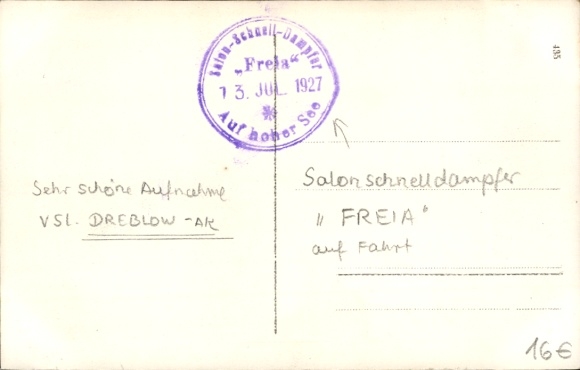 Salon-Schnell-Dampfer
„Freia“
13. JUL. 1927
*
Auf hoher See
435
Sehr schöne Aufnahme
VSL. DREBLOW-AK
Salonschnelldampfer
"FREIA"
auf Fahrt
16€